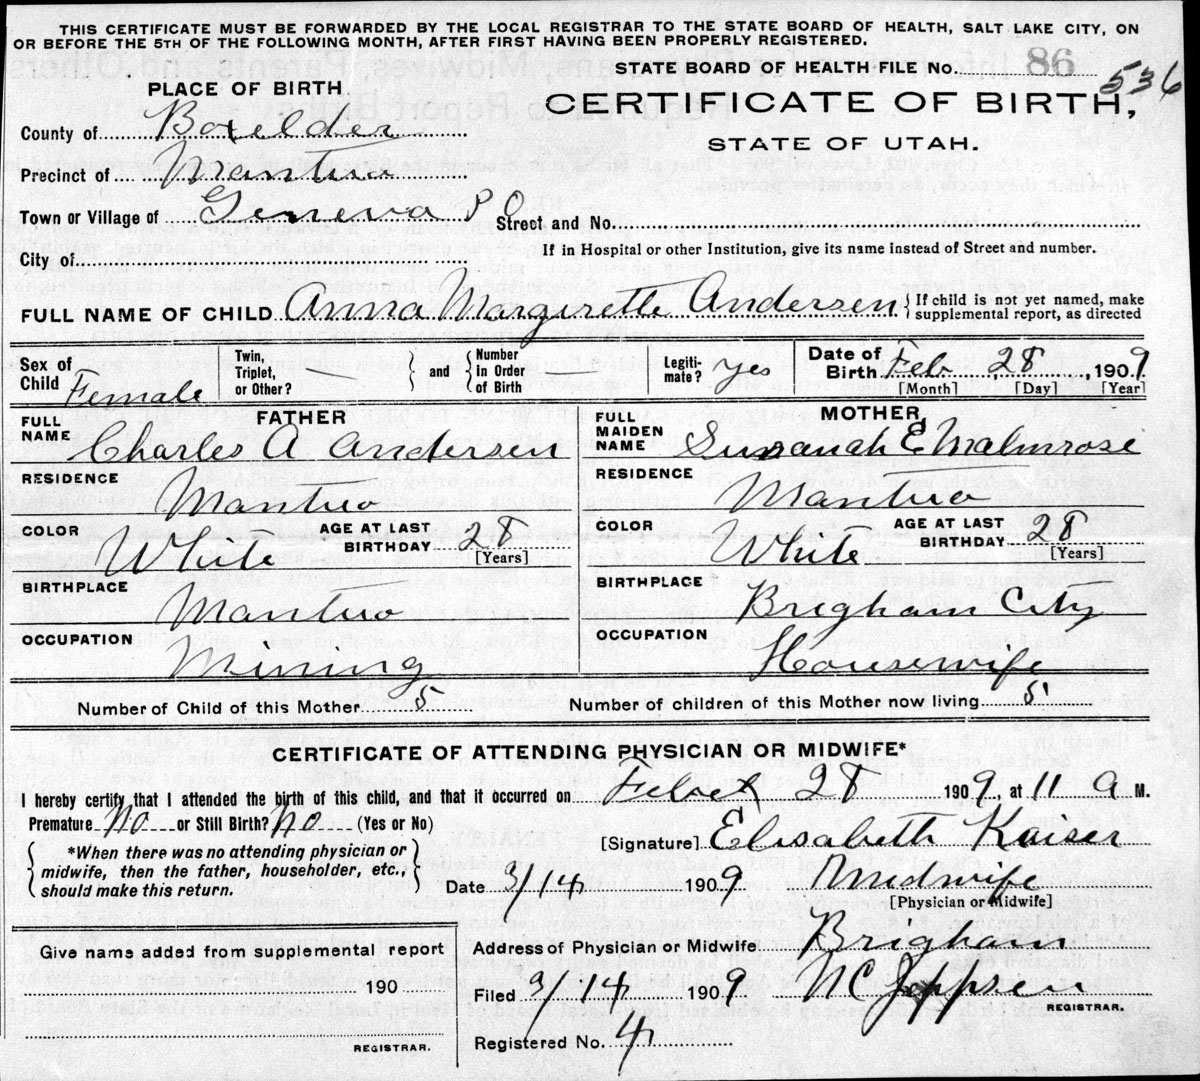 THIS CERTIFICATE MUST BE FORWARDED BY THE LOCAL REGISTRAR TO THE STATE BOARD OF HEALTH, SALT LAKE CITY, ON
OR BEFORE THE 5TH OF THE FOLLOWING MONTH, AFTER FIRST HAVING BEEN PROPERLY REGISTERED.
STATE BOARD OF HEALTH FILE No. 86 536
PLACE OF BIRTH
CERTIFICATE OF BIRTH,
STATE OF UTAH.
County of Boxelder
Precinct of Mantua
Town or Village of Geneva P O Street and No.
If in Hospital or other Institution, give its name instead of Street and number.
City of
FULL NAME OF CHILD Anna Margirette Andersen { If child is not yet named, make
supplemental report, as directed
Sex of Child Female
Twin, Triplet, or Other? — } and { Number in Order of Birth
Legitimate? yes
Date of Birth Feb 28, 1909
[Month] [Day] [Year]
FATHER
FULL NAME Charles A Andersen
RESIDENCE Mantua
COLOR White AGE AT LAST BIRTHDAY 28 [Years]
BIRTHPLACE Mantua
OCCUPATION Mining
MOTHER
FULL MAIDEN NAME Susanah E Malmrose
RESIDENCE Mantua
COLOR White AGE AT LAST BIRTHDAY 28 [Years]
BIRTHPLACE Brigham City
OCCUPATION Housewife
Number of Child of this Mother 5 Number of children of this Mother now living 5
CERTIFICATE OF ATTENDING PHYSICIAN OR MIDWIFE*
I hereby certify that I attended the birth of this child, and that it occurred on 28 1909, at 11 a M.
Premature No or Still Birth? No (Yes or No)
*When there was no attending physician or
midwife, then the father, householder, etc.,
should make this return.
[Signature] Elisabeth Kaiser
Date 3/14 1909 Midwife
[Physician or Midwife]
Give name added from supplemental report
190
REGISTRAR.
Address of Physician or Midwife Brigham
Filed 3/14 1909 N C Jeppsen
REGISTRAR.
Registered No. 4